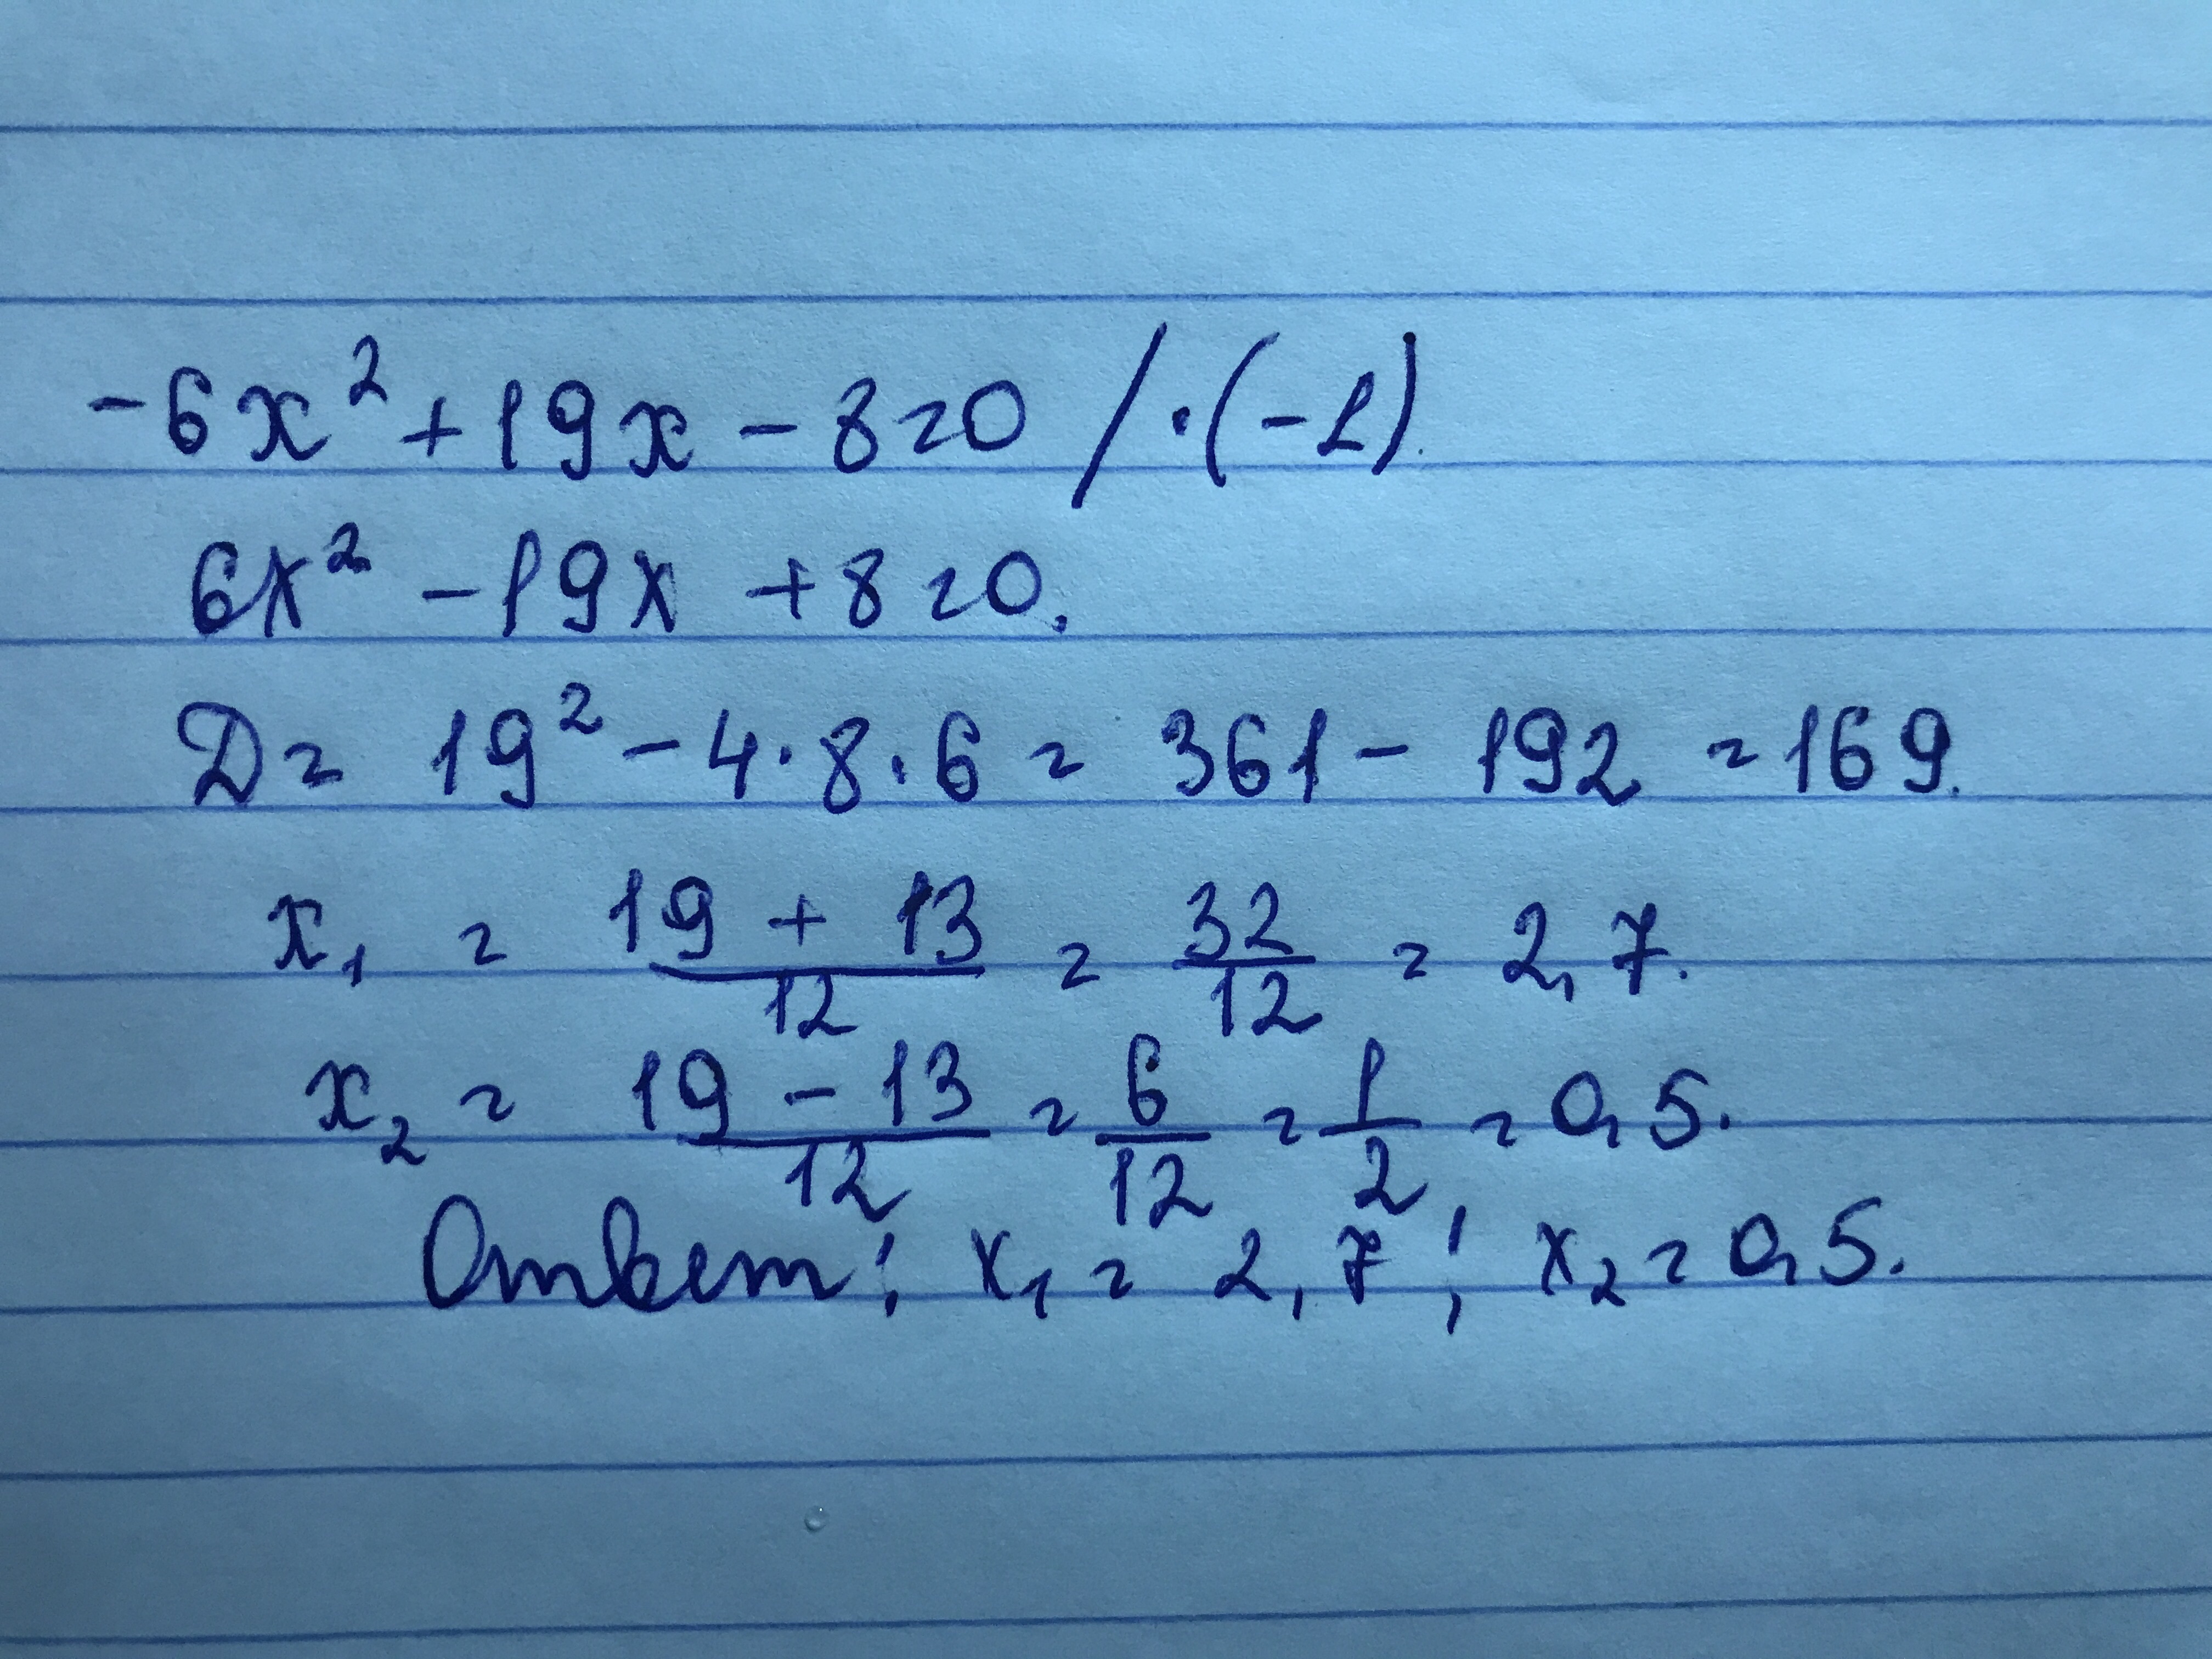 -6x² + 19x - 8 = 0 / · (-1).
6x² - 19x + 8 = 0.
D = 19² - 4 · 8 · 6 = 361 - 192 = 169.
x₁ = (19 + 13)/12 = 32/12 = 2,7.
x₂ = (19 - 13)/12 = 6/12 = 1/2 = 0,5.
Ответ: x₁ = 2,7; x₂ = 0,5.